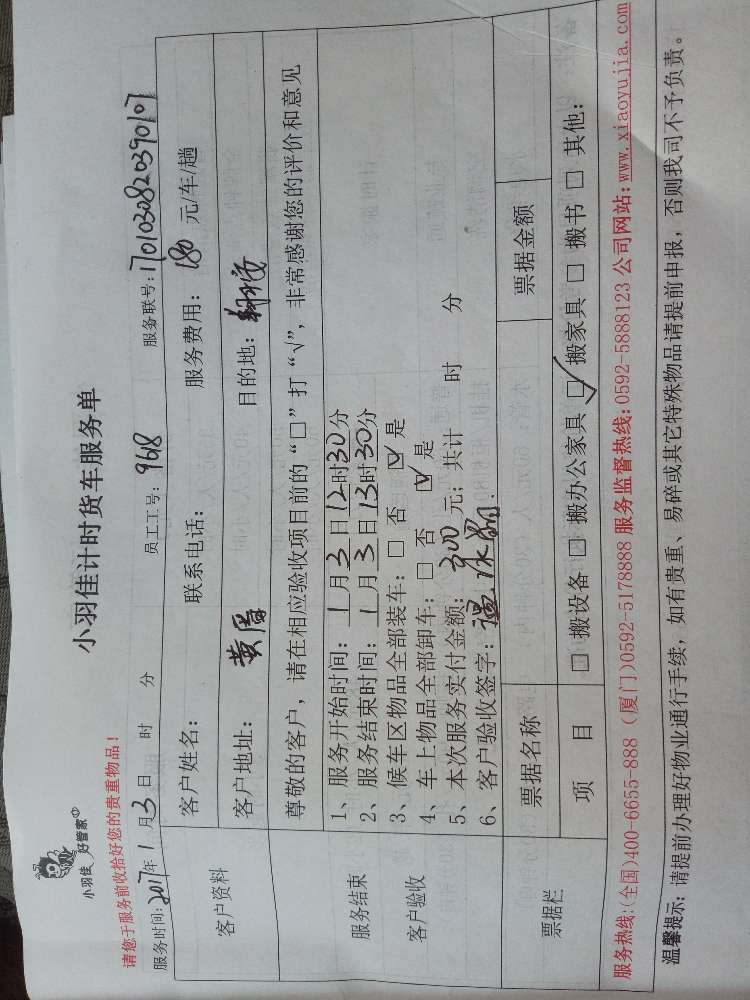 小羽佳 好管家
小羽佳计时货车服务单
请您于服务前收拾好您的贵重物品！
服务时间：2017年1月3日 时 分 员工工号：968 服务联号：1701030820390107
客户资料
客户姓名： 联系电话： 服务费用：180 元/车/趟
客户地址：黄厝 目的地：
尊敬的客户，请在相应验收项目前的“□”打“√”，非常感谢您的评价和意见
服务结束
客户验收
1、服务开始时间：1月3日12时30分
2、服务结束时间：1月3日13时30分
3、候车区物品全部装车：□ 否 ☑ 是
4、车上物品全部卸车：□ 否 ☑ 是
5、本次服务实付金额：300 元；共计 时 分
6、客户验收签字：
票据栏
票据名称 票据金额
项 目 □ 搬设备 □ 搬办公家具 ☑ 搬家具 □ 搬书 □ 其他：
服务热线：(全国)400-6655-888 (厦门)0592-5178888 服务监督热线：0592-5888123 公司网站：www.xiaoyujia.com
温馨提示：请提前办理好物业通行手续，如有贵重、易碎或其它特殊物品请提前申报，否则我司不予负责。